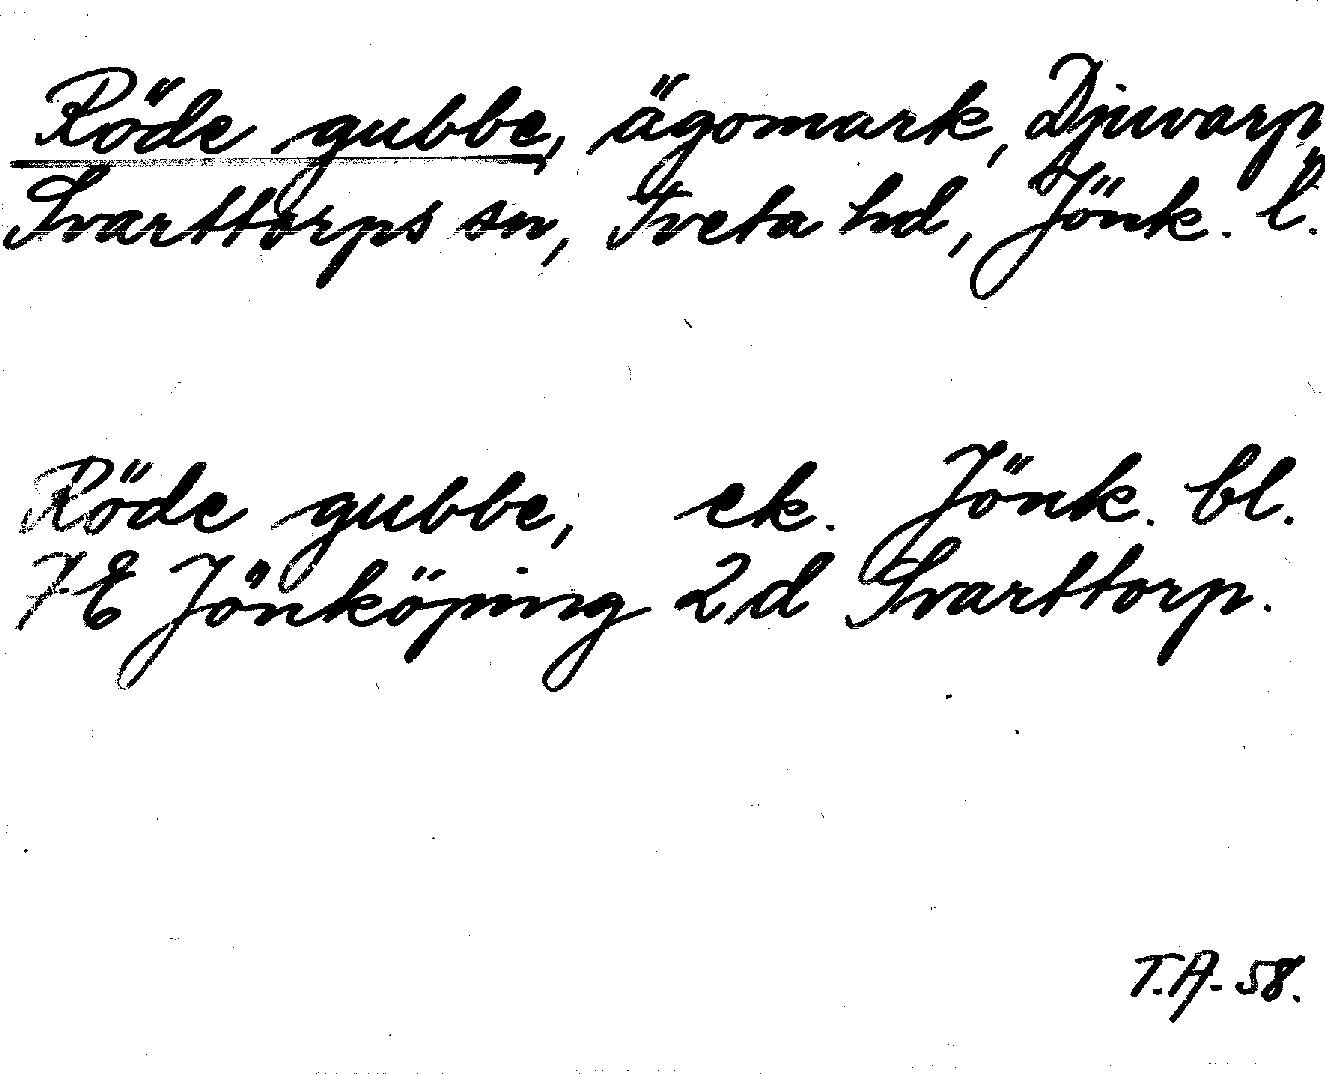 Röde gubbe, ägomark, Djuvarp,
Svarttorps sn, Tveta hd, Jönk. l.
Röde gubbe, ek. Jönk. bl.
7E Jönköping 2d Svarttorp.
T.A. 58.